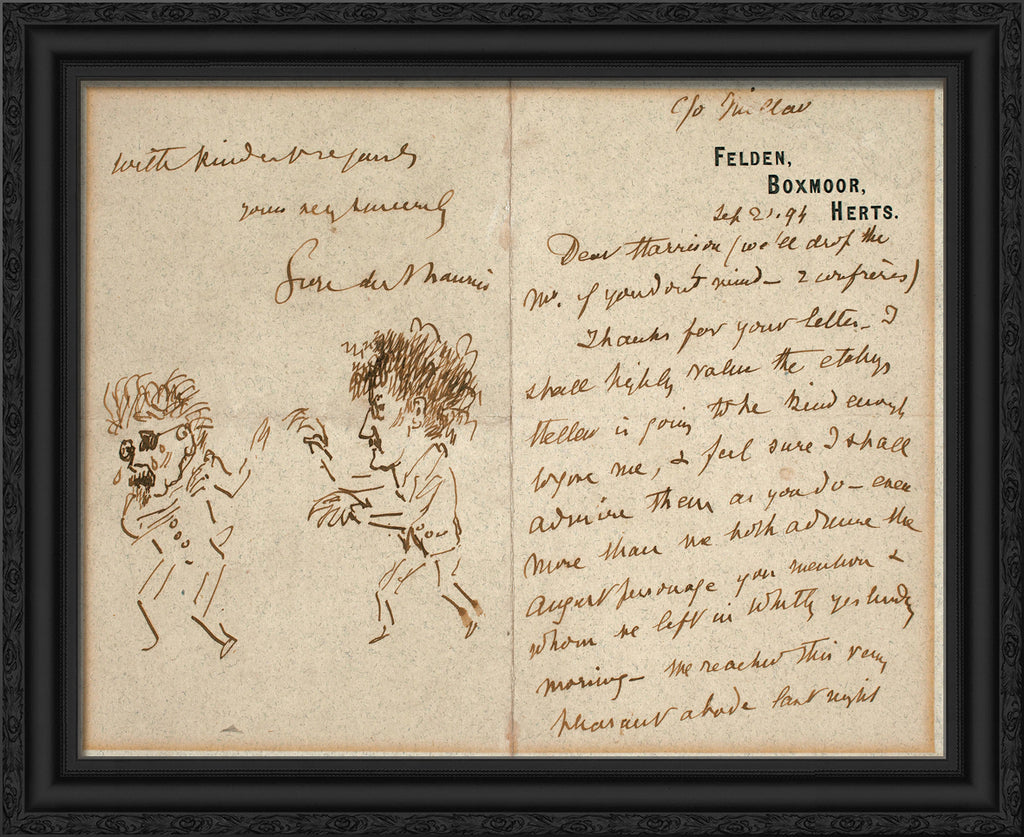 with kindest regards
yours very sincerely
George du Maurier
c/o
FELDEN,
BOXMOOR,
HERTS.
Sep 21. 94
Dear Harrison (we'll drop the
Mr. if you don't mind — 2 confrères)
Thanks for your letter — I
shall highly value the etchings
Mellor is going to be kind enough
to give me, & feel sure I shall
admire them as you do — even
more than we both admire the
august personage you mention &
whom we left in Whitby yesterday
morning — We reached this very
pleasant abode last night